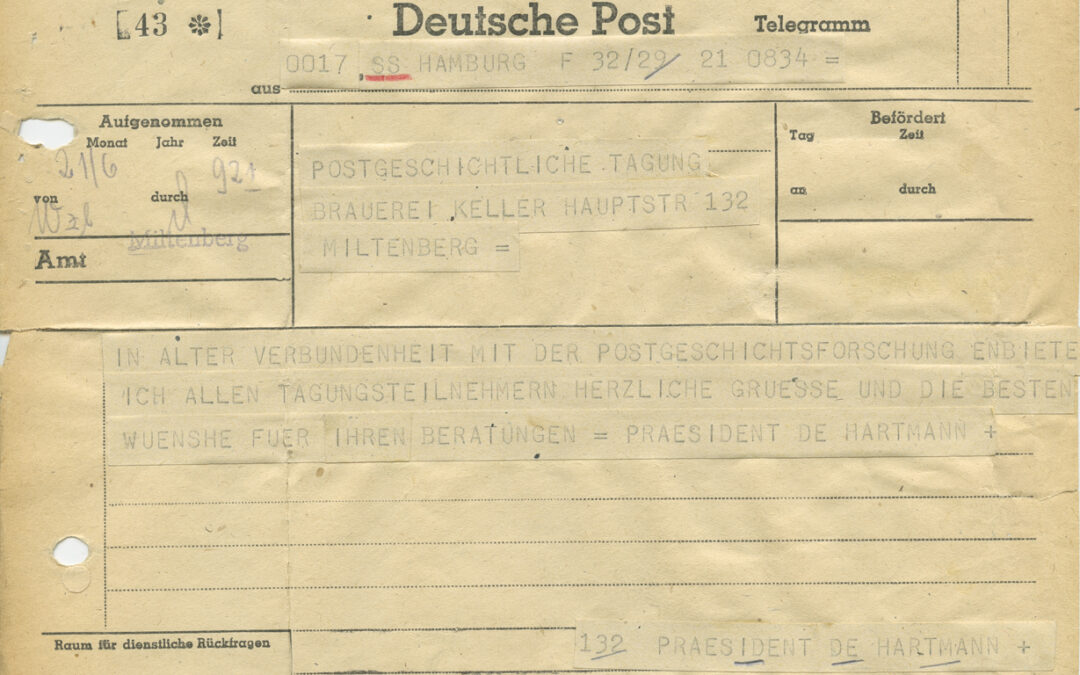 [43 ❊] Deutsche Post Telegramm
0017 SS HAMBURG F 32/29 21 0834 =
aus
Aufgenommen
Monat Jahr Zeit
21/6
von durch
Miltenberg
Amt
POSTGESCHICHTLICHE TAGUNG
BRAUEREI KELLER HAUPTSTR 132
MILTENBERG =
Befördert
Tag Zeit
an durch
IN ALTER VERBUNDENHEIT MIT DER POSTGESCHICHTSFORSCHUNG ENBIETE
ICH ALLEN TAGUNGSTEILNEHMERN HERZLICHE GRUESSE UND DIE BESTEN
WUENSHE FUER IHREN BERATUNGEN = PRAESIDENT DE HARTMANN +
Raum für dienstliche Rückfragen
132 PRAESIDENT DE HARTMANN +